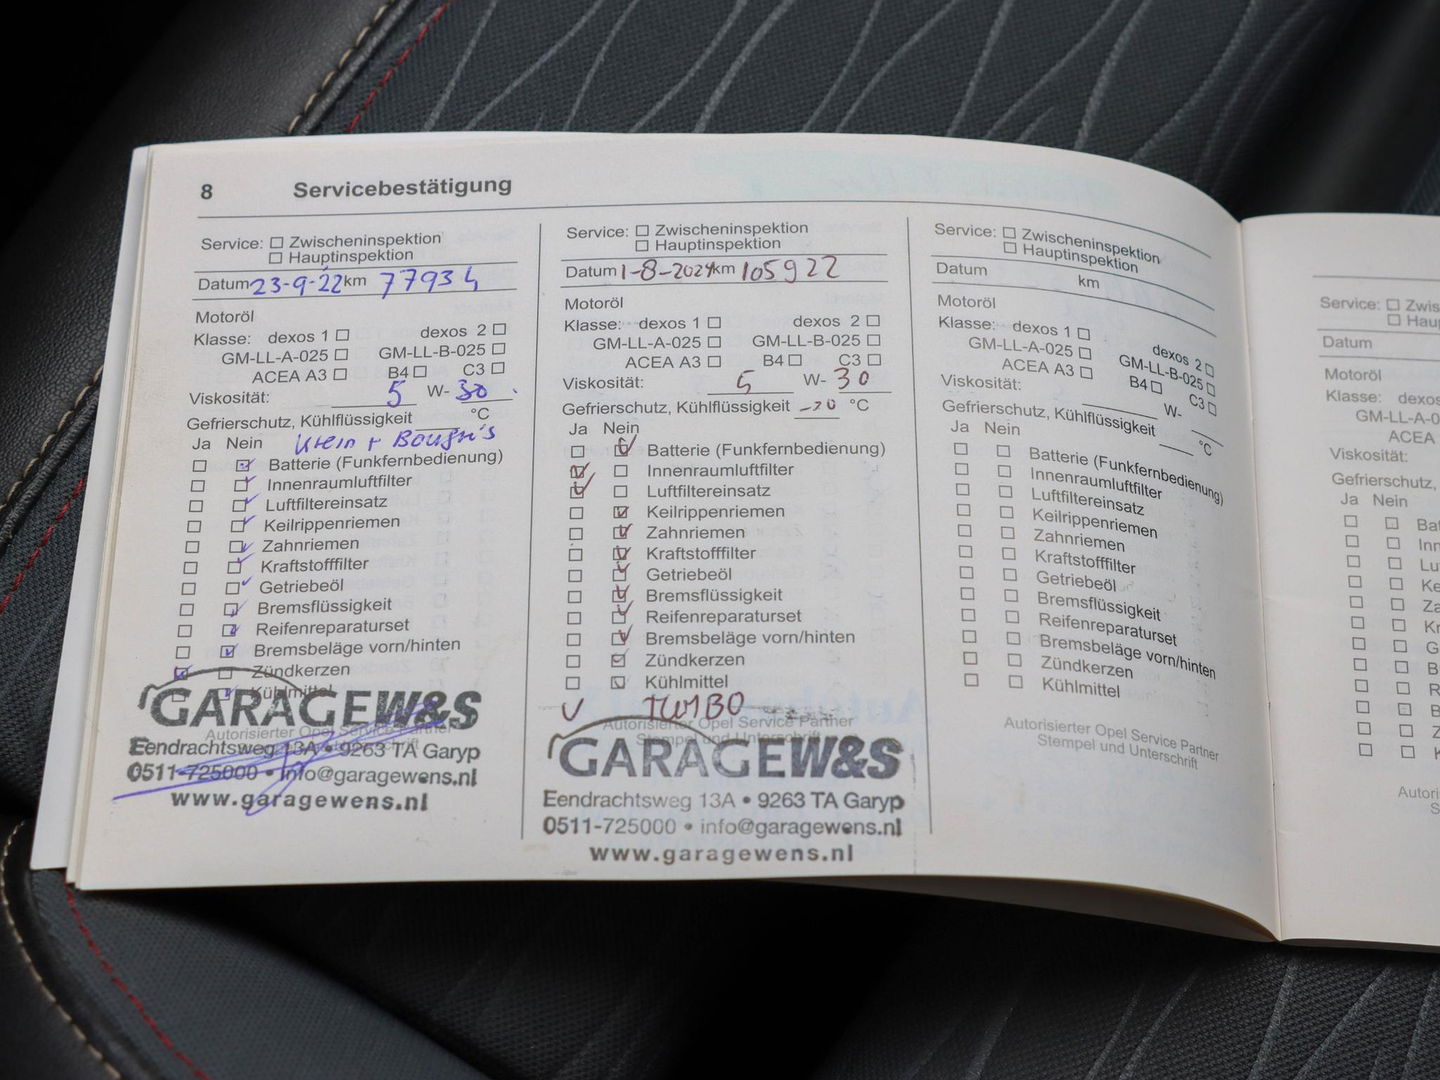 8 Servicebestätigung
Service: ☐ Zwischeninspektion
☐ Hauptinspektion
Datum 23-9-22 km 77934
Motoröl
Klasse: dexos 1 ☐ dexos 2 ☐
GM-LL-A-025 ☐ GM-LL-B-025 ☐
ACEA A3 ☐ B4 ☐ C3 ☐
Viskosität: 5 W- 30
Gefrierschutz, Kühlflüssigkeit °C
Ja Nein Klein + Bougie's
Batterie (Funkfernbedienung)
Innenraumluftfilter
Luftfiltereinsatz
Keilrippenriemen
Zahnriemen
Kraftstofffilter
Getriebeöl
Bremsflüssigkeit
Reifenreparaturset
Bremsbeläge vorn/hinten
Zündkerzen
Kühlmittel
Autorisierter Opel Service Partner
GARAGE W&S
Eendrachtsweg 13A • 9263 TA Garyp
0511-725000 • info@garagewens.nl
www.garagewens.nl
Service: ☐ Zwischeninspektion
☐ Hauptinspektion
Datum 1-8-2024 km 105922
Motoröl
Klasse: dexos 1 ☐ dexos 2 ☐
GM-LL-A-025 ☐ GM-LL-B-025 ☐
ACEA A3 ☐ B4 ☐ C3 ☐
Viskosität: 5 W- 30
Gefrierschutz, Kühlflüssigkeit -20 °C
Ja Nein
Batterie (Funkfernbedienung)
Innenraumluftfilter
Luftfiltereinsatz
Keilrippenriemen
Zahnriemen
Kraftstofffilter
Getriebeöl
Bremsflüssigkeit
Reifenreparaturset
Bremsbeläge vorn/hinten
Zündkerzen
Kühlmittel
Autorisierter Opel Service Partner
Stempel und Unterschrift
GARAGE W&S
Eendrachtsweg 13A • 9263 TA Garyp
0511-725000 • info@garagewens.nl
www.garagewens.nl
Service: ☐ Zwischeninspektion
☐ Hauptinspektion
Datum km
Motoröl
Klasse: dexos 1 ☐ dexos 2 ☐
GM-LL-A-025 ☐ GM-LL-B-025 ☐
ACEA A3 ☐ B4 ☐ C3 ☐
Viskosität: W-
Gefrierschutz, Kühlflüssigkeit °C
Ja Nein
Batterie (Funkfernbedienung)
Innenraumluftfilter
Luftfiltereinsatz
Keilrippenriemen
Zahnriemen
Kraftstofffilter
Getriebeöl
Bremsflüssigkeit
Reifenreparaturset
Bremsbeläge vorn/hinten
Zündkerzen
Kühlmittel
Autorisierter Opel Service Partner
Stempel und Unterschrift
Service: ☐ Zwis
☐ Hau
Datum
Motoröl
Klasse: dexos
GM-LL-A-0
ACEA
Viskosität:
Gefrierschutz,
Ja Nein